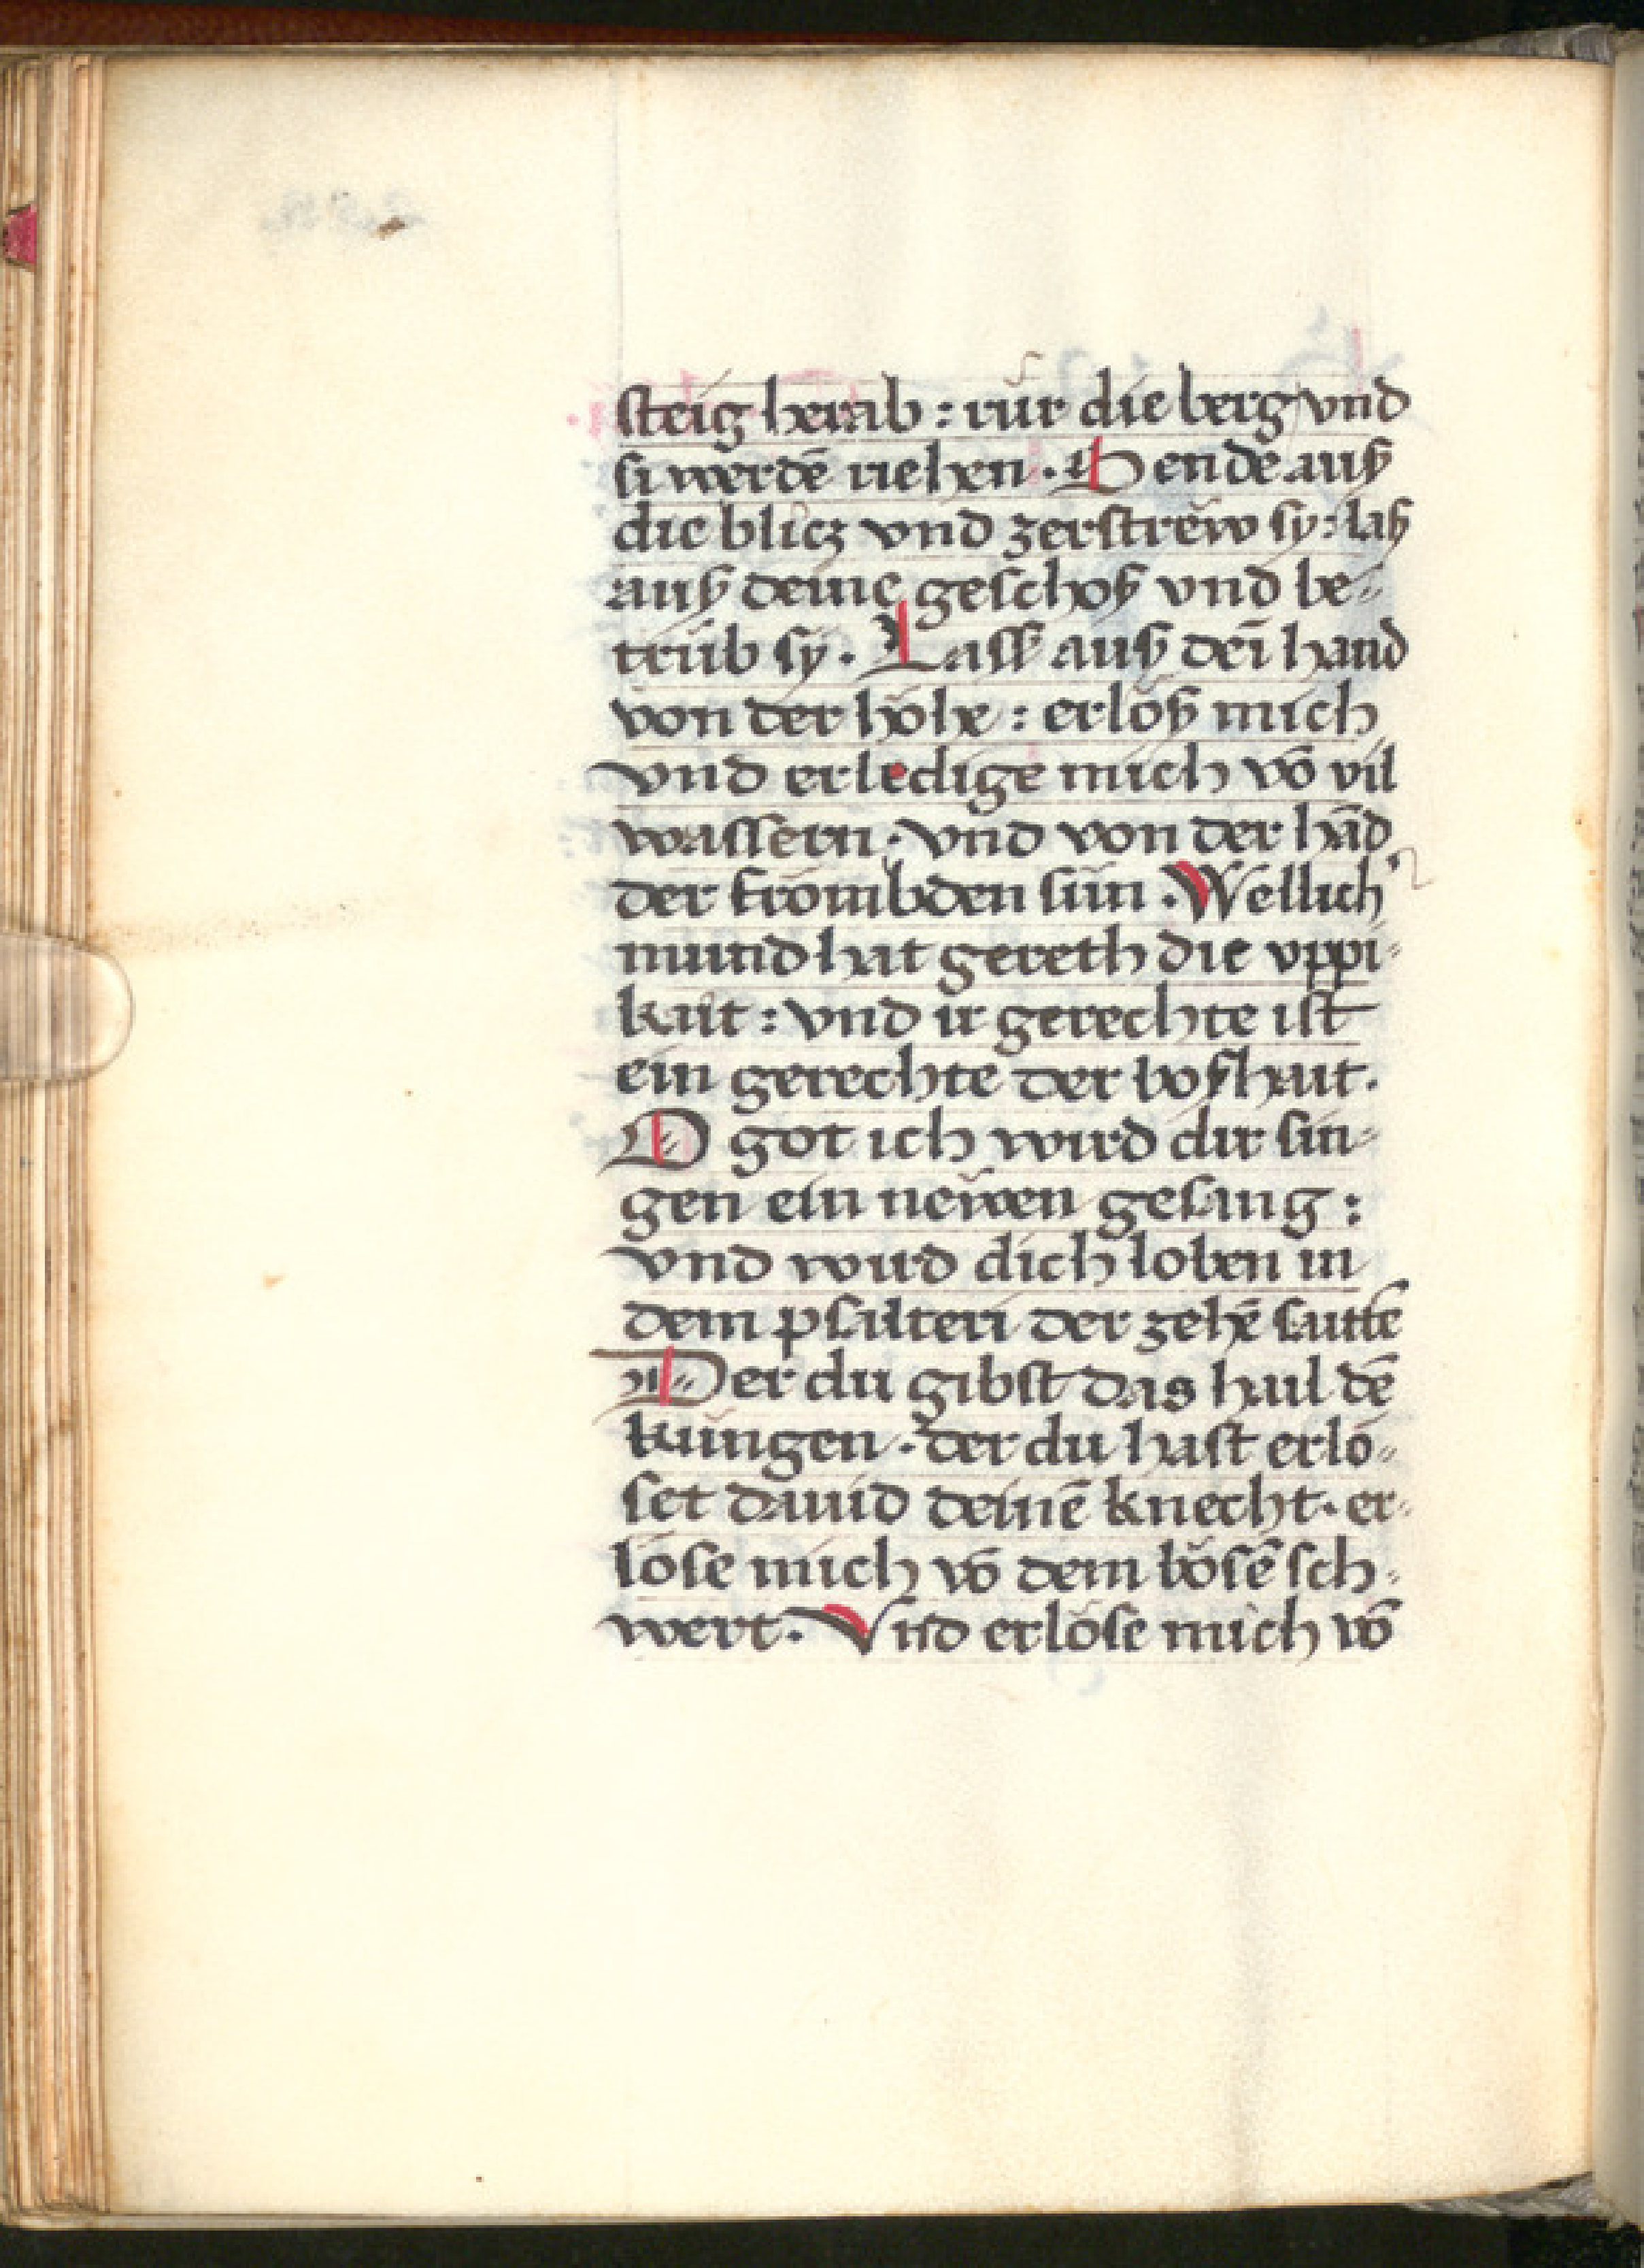 steig herab : rür die berg vnd
si werdē riehen . Sende auß
die blicz vnd zerströw sy : laß
auß deine geschoß vnd be⸗
trüb sy . Lass auß deī hand
von der höhe : erlöß mich
vnd erledige mich vō vil
wassern . vnd von der hād
der frömbden sün . Wellich
mund hat gereth die vppi⸗
kait : vnd ir gerechte ist
ein gerechte der boßhait .
O got ich wird dir sin⸗
gen ein newen gesang :
vnd wird dich loben in
dem psalteri der zehē saitte
Der du gibst das hail dē
küngen . der du hast erlö⸗
set dauid deinē knecht . er⸗
löse mich vō dem bösē sch⸗
wert . Vnd erlöse mich vō